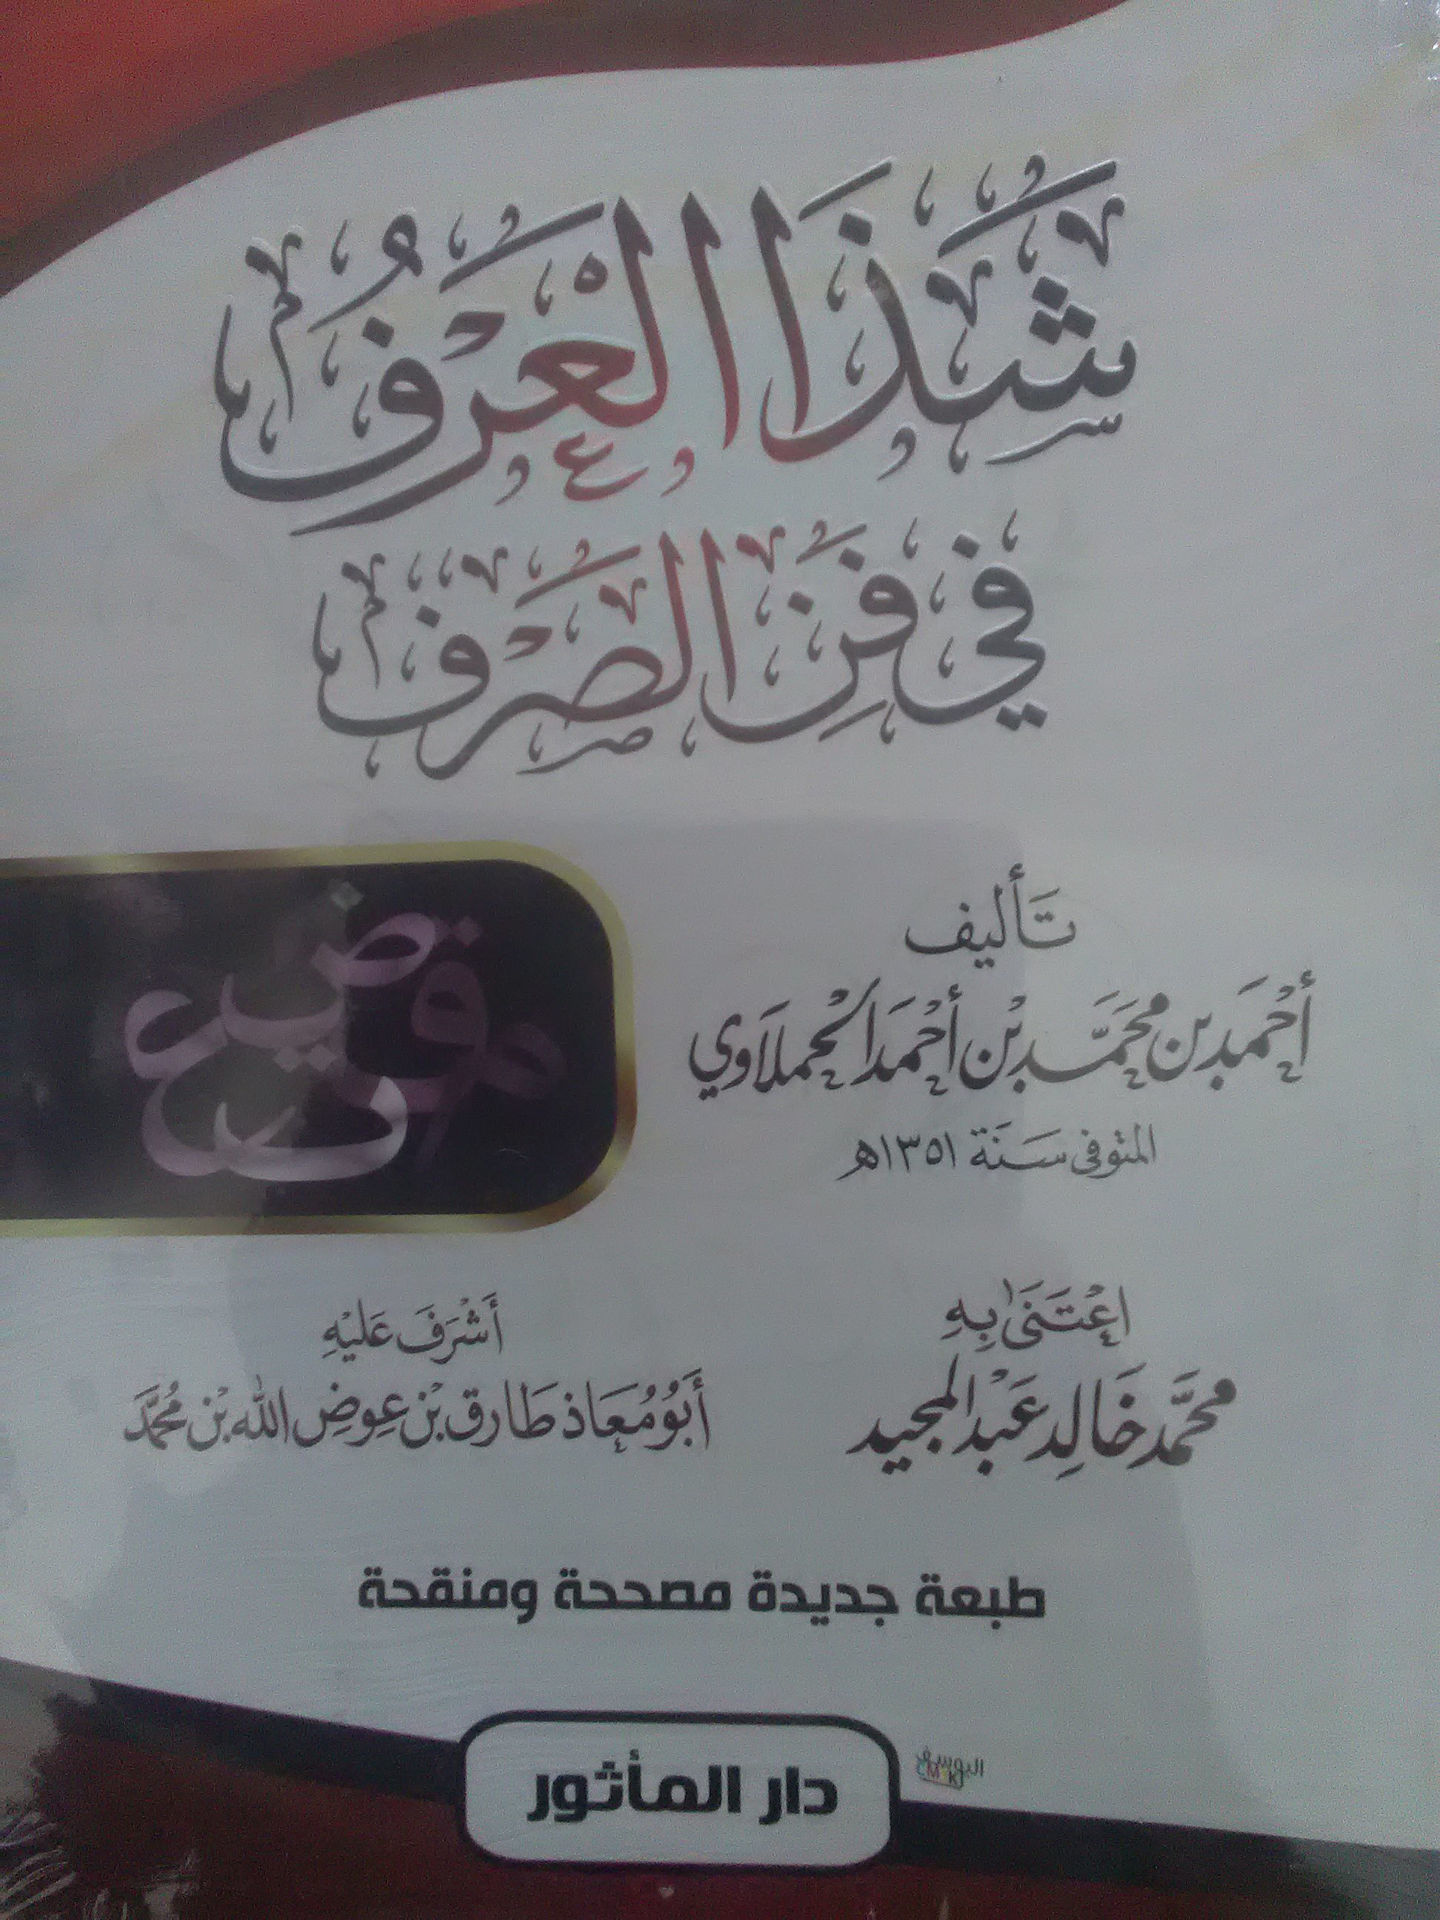 شَذَا الْعَرْفِ
فِي فَنِّ الصَّرْفِ
تَأليف
أَحْمَد بن مُحَمَّد بْن أَحْمَد الْحَملَاوي
المتوفى سَنَة ١٣٥١هـ
اِعْتَنَىٰ بِهِ
مُحَمَّد خَالِد عَبْد المجيد
أَشْرَفَ عَلَيْهِ
أَبُو مُعَاذ طَارق بْن عِوضِ اللّٰه بْن مُحَمَّد
طبعة جديدة مصححة ومنقحة
دار المأثور